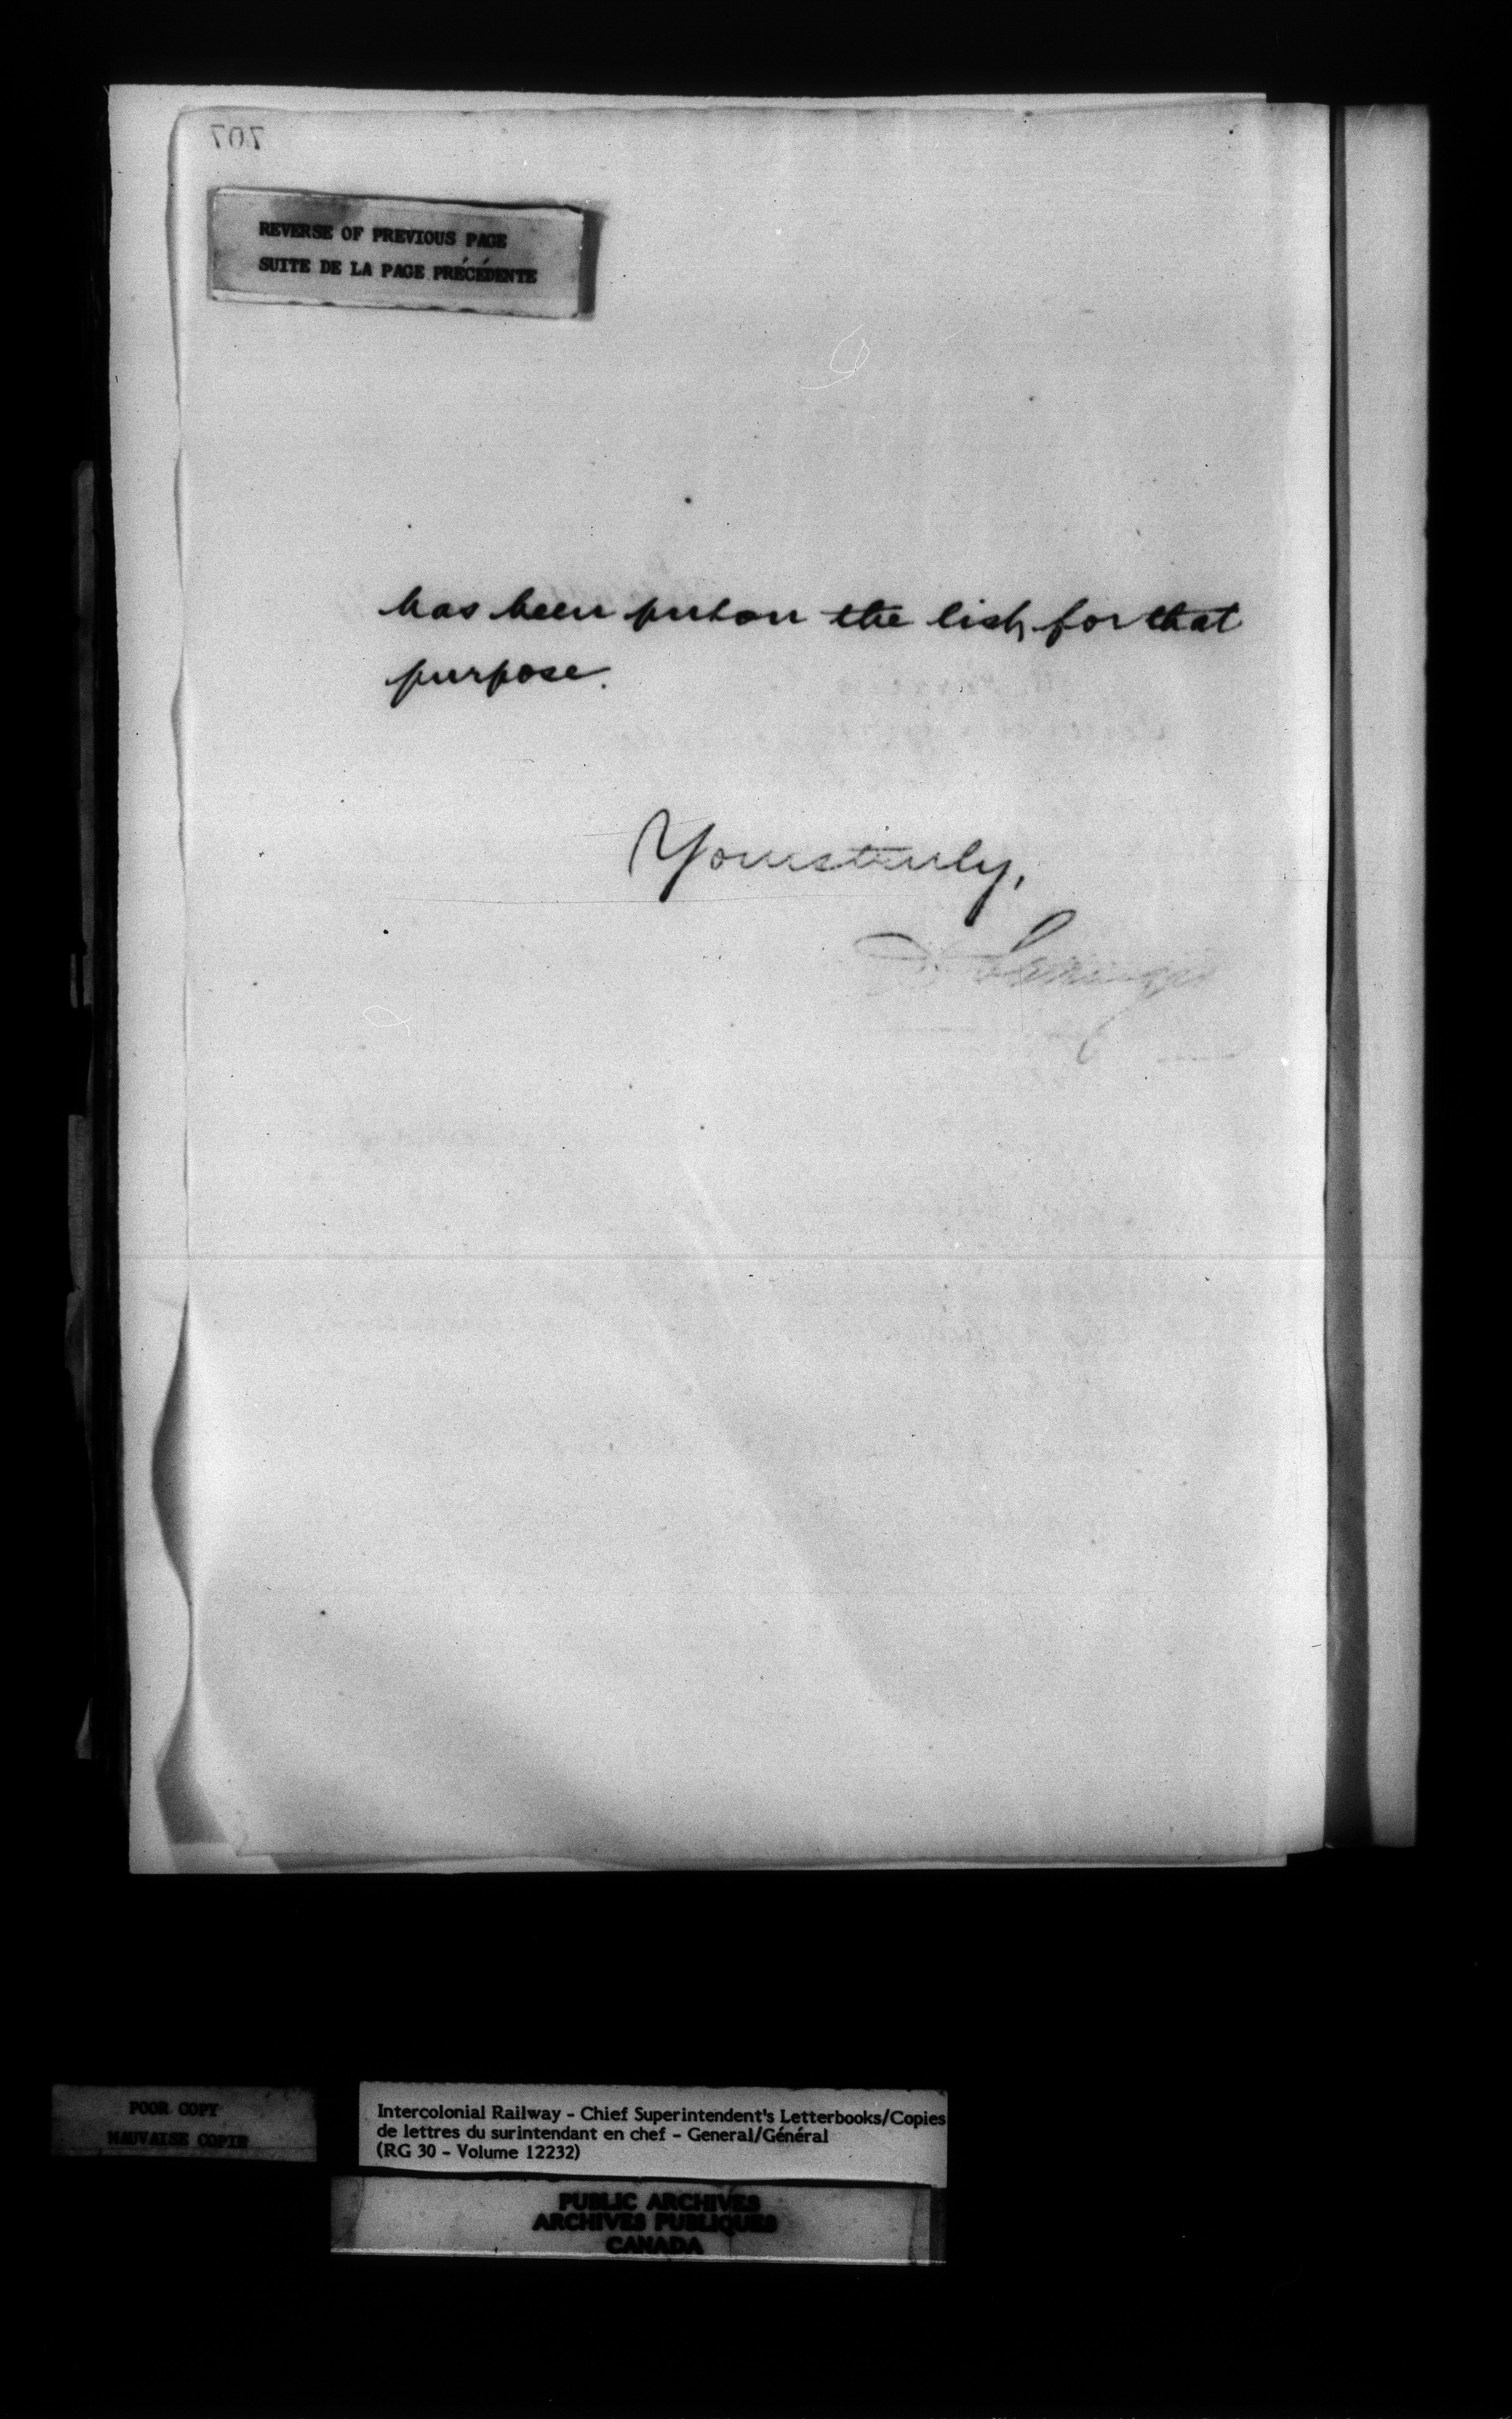 707
REVERSE OF PREVIOUS PAGE
SUITE DE LA PAGE PRÉCÉDENTE
has been put on the list for that
purpose.
Yours truly,
POOR COPY
MAUVAISE COPIE
Intercolonial Railway - Chief Superintendent's Letterbooks/Copies
de lettres du surintendant en chef - General/Général
(RG 30 - Volume 12232)
PUBLIC ARCHIVES
ARCHIVES PUBLIQUES
CANADA